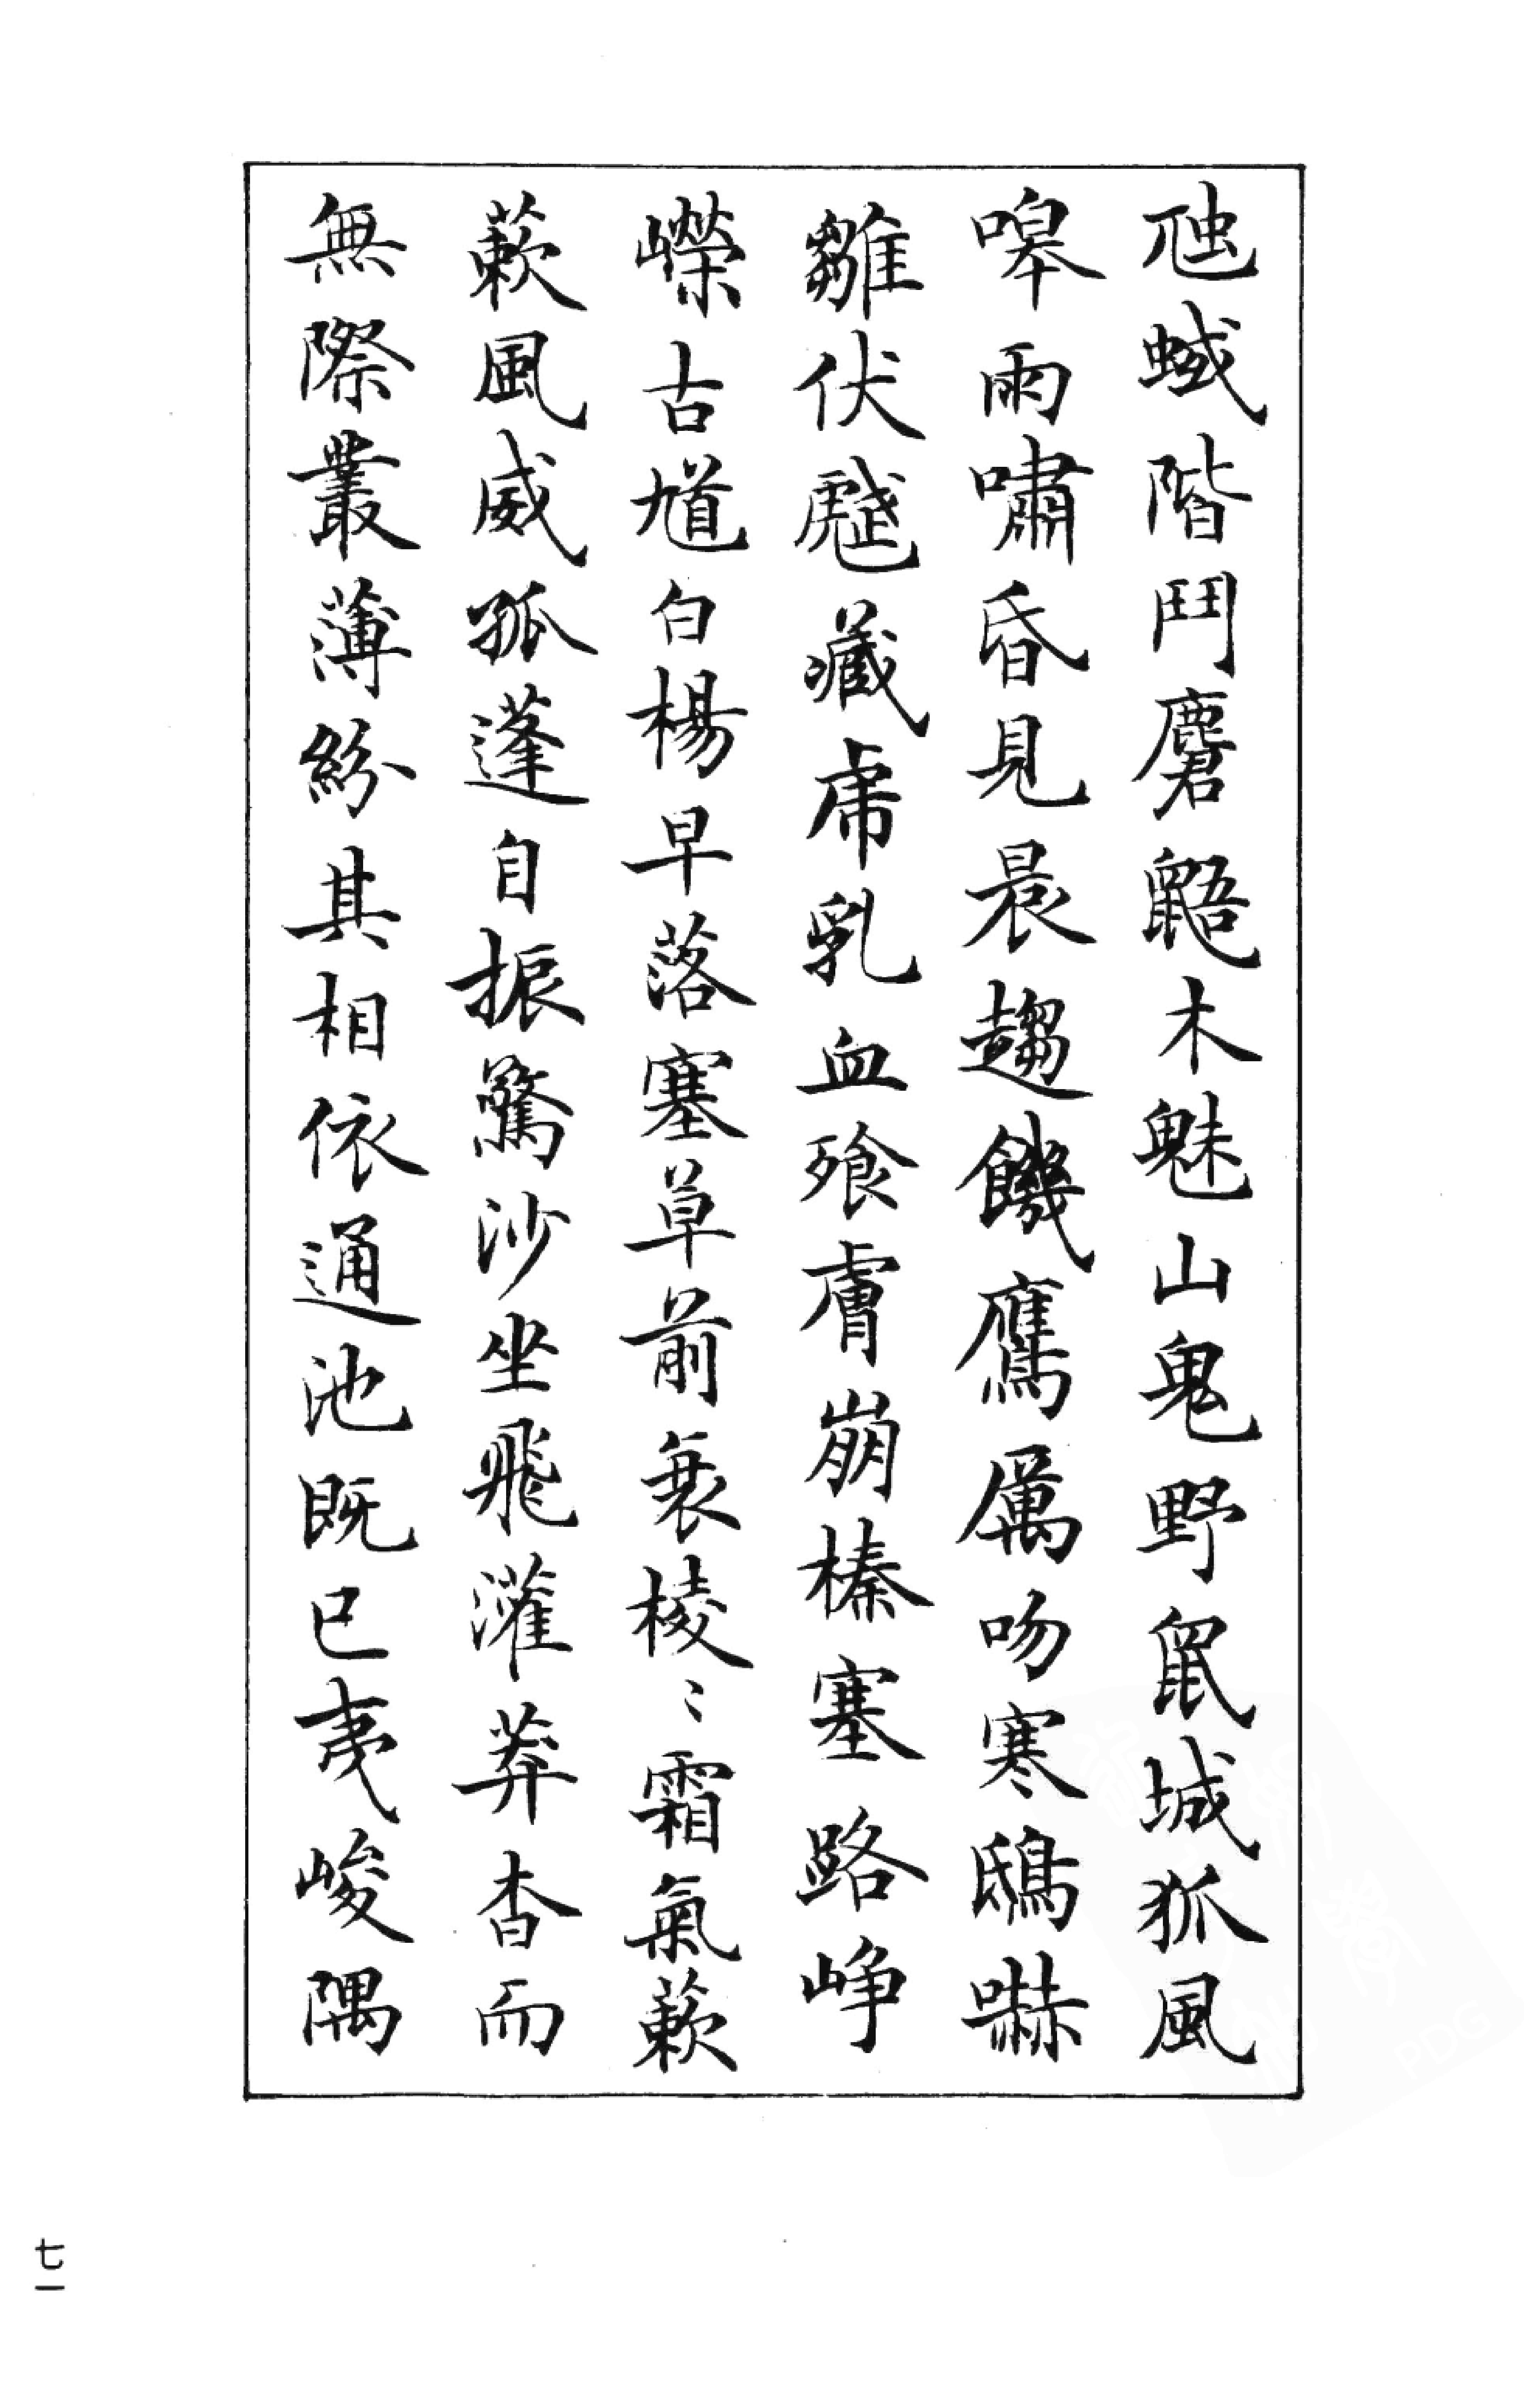 虺蜮階鬥麏鼯木魅山鬼野鼠城狐風
嘷雨嘯昏見晨趨饑鷹厲吻寒鴟嚇
雛伏虣藏虎乳血飱膚崩榛塞路崢
嶸古馗白楊早落塞草前衰棱〻霜氣蔌
蔌風威孤蓬自振驚沙坐飛灌莽杳而
無際叢薄紛其相依通池既已夷峻隅
七一